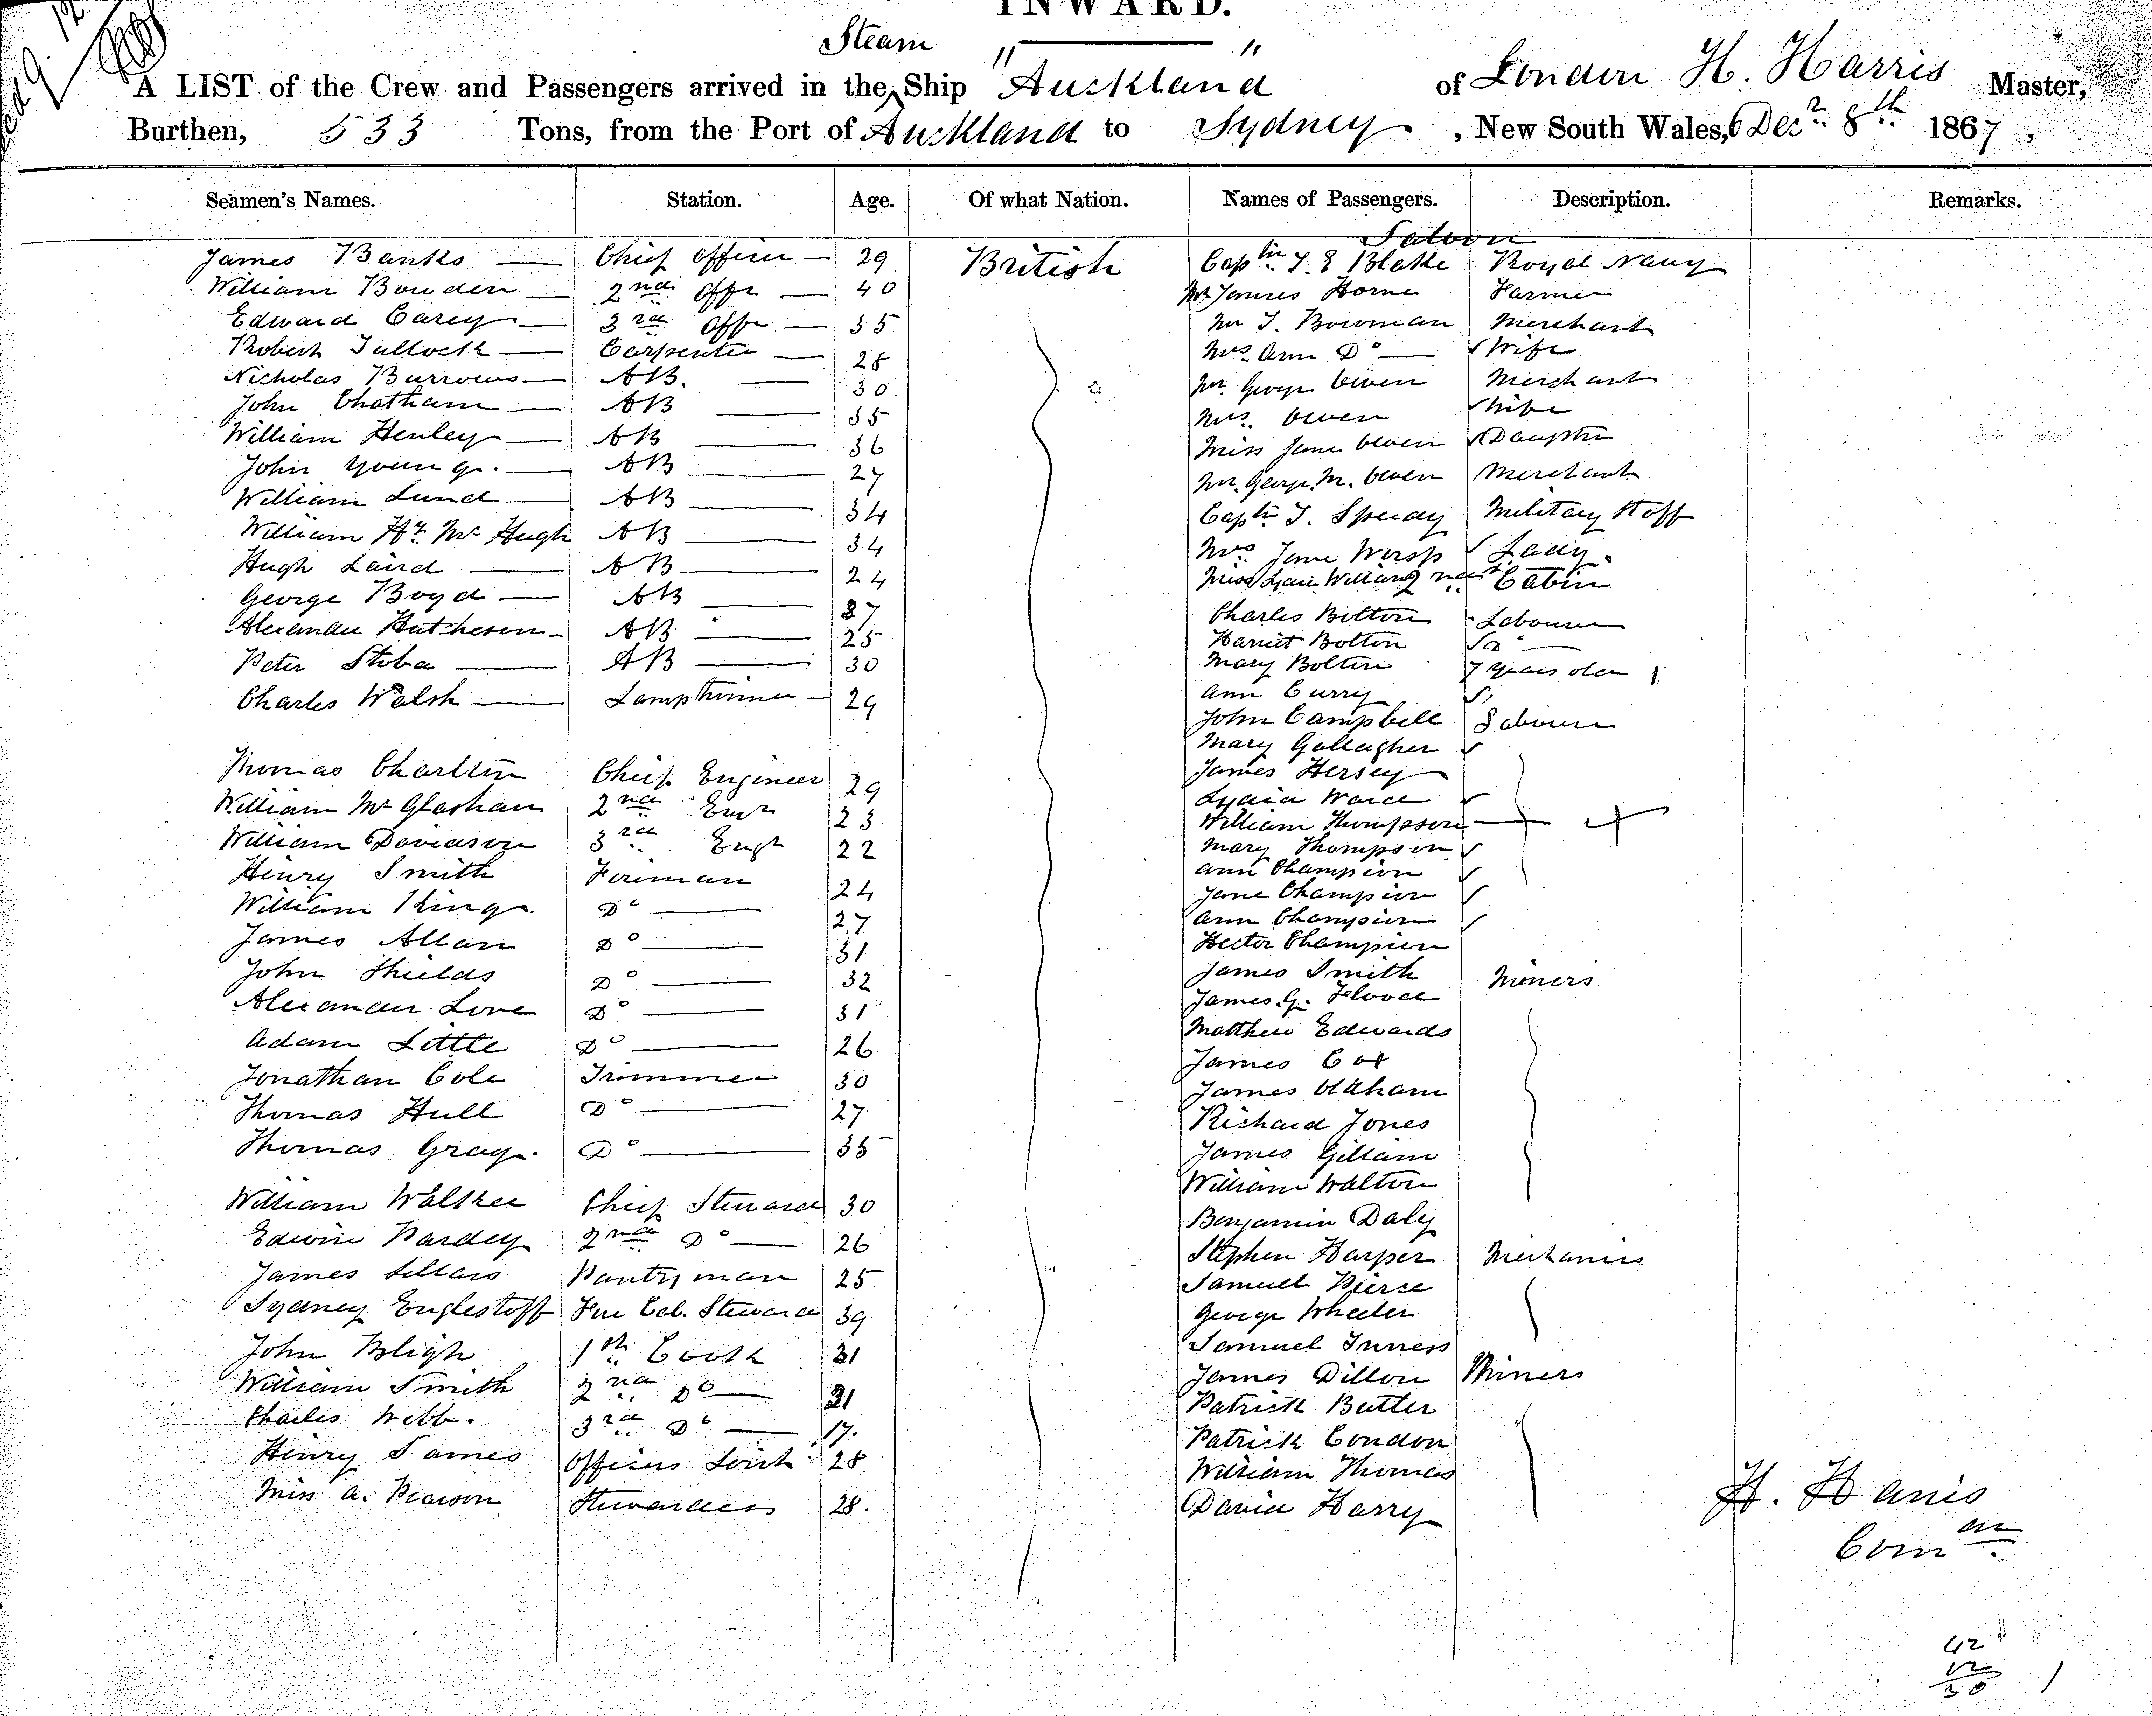 INWARD.
Steam
A LIST of the Crew and Passengers arrived in the Ship "Auckland" of London H. Harris Master,
Burthen, 533 Tons, from the Port of Auckland to Sydney, New South Wales, Decr 8th 1867,
Seamen's Names. Station. Age. Of what Nation. Names of Passengers. Description. Remarks.
Saloon
James Banks Chief Officer 29 British Captn T. E Blake Royal Navy
William Bowden 2nd Offr 40 Mr James Horne Farmer
Edward Carey 3rd Offr 35 Mr J. Bowman Merchant
Robert Tullock Carpenter 28 Mrs Ann Do Wife
Nicholas Burrows AB. 30 Mr George Owen Merchant
John Chatham AB 35 Mrs Owen Wife
William Henley AB 36 Miss Jane Owen Daughter
John Young AB 27 Mr George M. Owen Merchant
William Lund AB 34 Captn T. Speedy Military Staff
William Hy Mc Hugh AB 34 Mrs Jane Worsp Lady
Hugh Laird AB 24 Miss Williams Cabin
George Boyd AB 37 Charles Bolton Labourer
Alexander Hutheson AB 25 Harriet Bolton Do
Peter Stoba AB 30 Mary Bolton 7 years old 1
Charles Walsh Lamptrimmer 29 Ann Curry
John Campbell Labourer
Mary Gallagher
Thomas Charlton Chief Engineer 29 James Hersey
William McGlashan 2nd Engr 23 Lydia Ward
William Thompson
William Davidson 3rd Engr 22 Mary Thompson
Henry Smith Fireman 24 Ann Champion
Jane Champion
William King Do 27 Ann Champion
James Allan Do 31 Hector Champion
John Shields Do 32 James Smith Miners
Alexander Love Do 31 James G. Flood
Adam Little Do 26 Matthew Edwards
James Cox
Jonathan Cole Trimmer 30 James Oldham
Thomas Hull Do 27 Richard Jones
Thomas Gray Do 35 James Gillam
William Walton
William Walker Chief Steward 30 Benjamin Daly
Edwin Pardey 2nd Do 26 Stephen Harper Mechanics
James Sellars Pantryman 25 Samuel Pierse
Sydney Englestoff Fore Cab. Steward 39 George Wheeler
John Bligh 1st Cook 31 Samuel Inness
William Smith 2nd Do 21 James Dillon Miners
Patrick Butler
Charles Webb. 3rd Do 17. Patrick Condon
Henry James Officers Servt 28 William Thomas
Miss A. Pearson Stewardess 28. David Harry
H. Harris
Comder
42
12
30